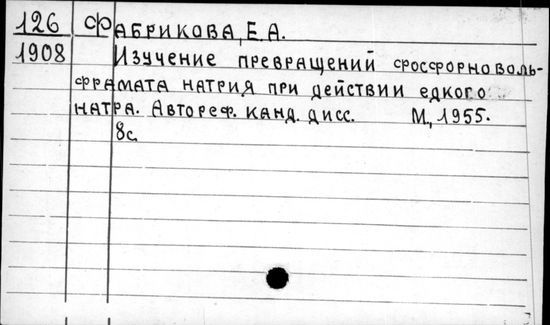 126 ФАБРИКОВА, Е.А.
1908 Изучение превращений фосфорноволь-
фрамата натрия при действии едкого
натра. Автореф. канд. дисс. М., 1955.
8с.